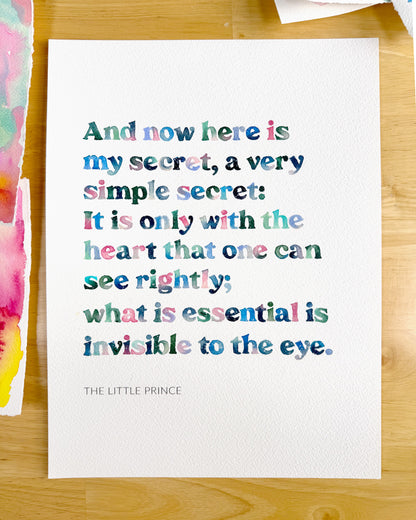 And now here is
my secret, a very
simple secret:
It is only with the
heart that one can
see rightly;
what is essential is
invisible to the eye.
THE LITTLE PRINCE